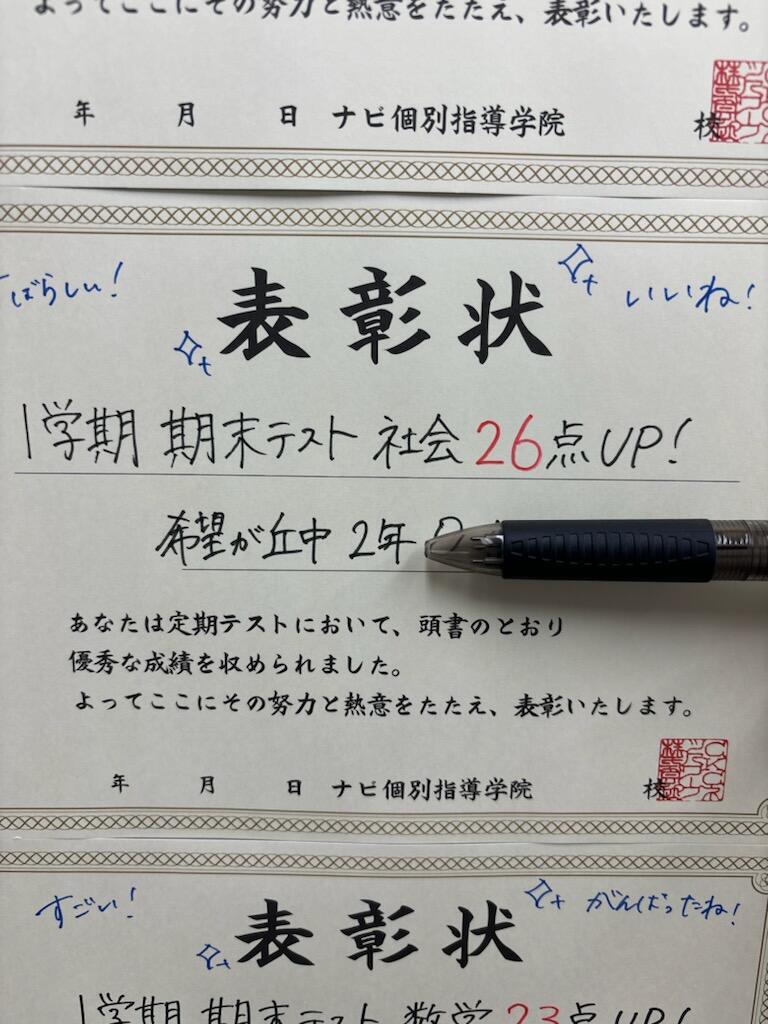 よってここにその努力と熱意をたたえ、表彰いたします。
年 月 日 ナビ個別指導学院 校
ばらしい! いいね!
表彰状
1学期 期末テスト 社会 26点UP!
希望が丘中 2年
あなたは定期テストにおいて、頭書のとおり
優秀な成績を収められました。
よってここにその努力と熱意をたたえ、表彰いたします。
年 月 日 ナビ個別指導学院 校
すごい! がんばったね!
表彰状
1学期 期末テスト 数学 23点UP!